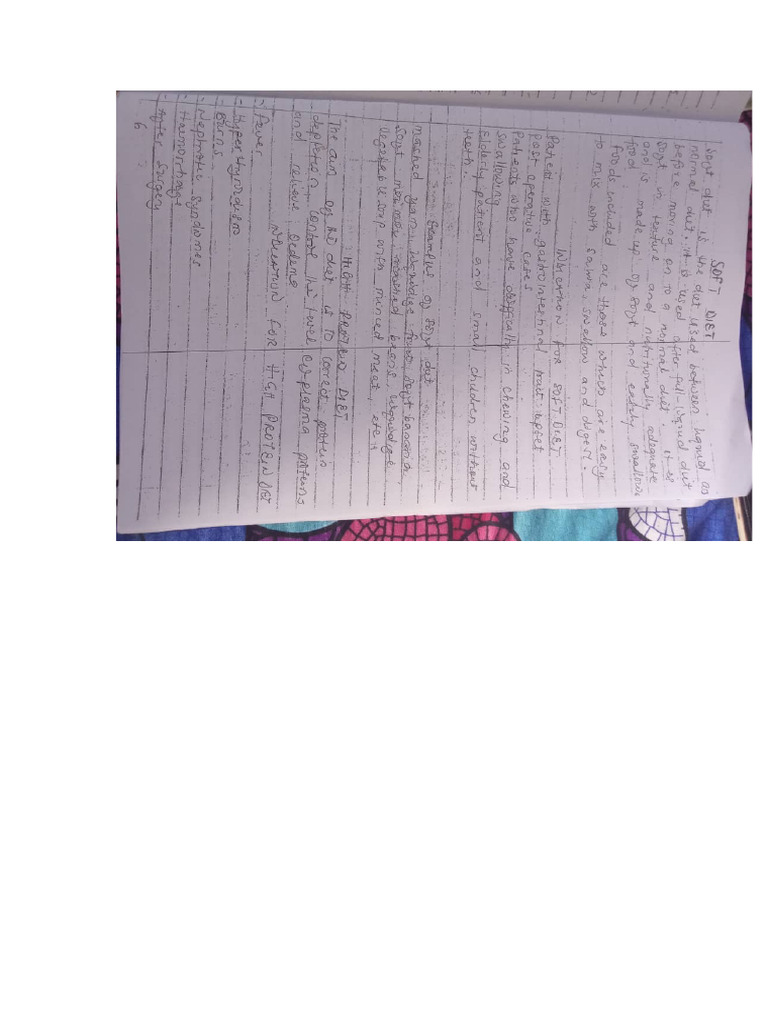 SOFT DIET
Soft diet is the diet used between liquid as
normal diet. it is used after full liquid diet
before moving on to a normal diet. it is
soft in texture and nutritionally adequate
and is made up of soft and easily swallow
food
foods included are those which are easy
to mix with saliva, swallow and digest.
INDICATION FOR SOFT DIET
Patient with gastrointestinal tract upset
Post operative cases
Patients who have difficulty in chewing and
swallowing
Elderly patient and small children without
teeth.
Examples of soft diet
mashed yam, porridge, soft banana
soft moi moi, mashed beans porridge
Vegetable soup with minced meat, etc
HIGH PROTEIN DIET
The aim of the diet is to correct protein
depletion, control the level of plasma proteins
and relieve oedema
INDICATION FOR HIGH PROTEIN DIET
Fever
Hyperthyrodism
Burns
Nephrotic Syndromes
Haemorrhage
After Surgery
6